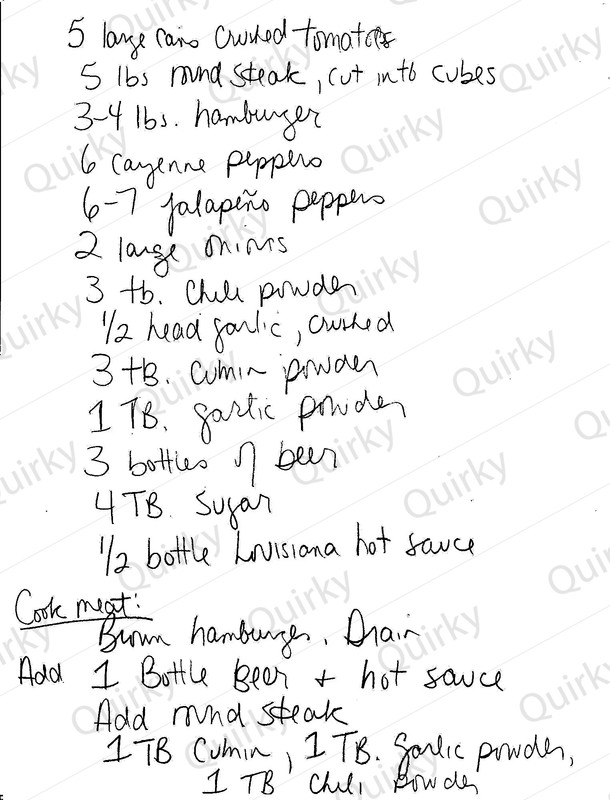 5 large cans crushed tomatoes
5 lbs round steak, cut into cubes
3-4 lbs. hamburger
6 cayenne peppers
6-7 jalapeño peppers
2 large onions
3 tb. chili powder
1/2 head garlic, crushed
3 tB. cumin powder
1 TB. garlic powder
3 bottles of beer
4 TB. sugar
1/2 bottle Louisiana hot sauce
Cook meat:
Brown hamburger. Drain
Add 1 Bottle Beer + hot sauce
Add round steak
1 TB Cumin, 1 TB. garlic powder,
1 TB chili powder